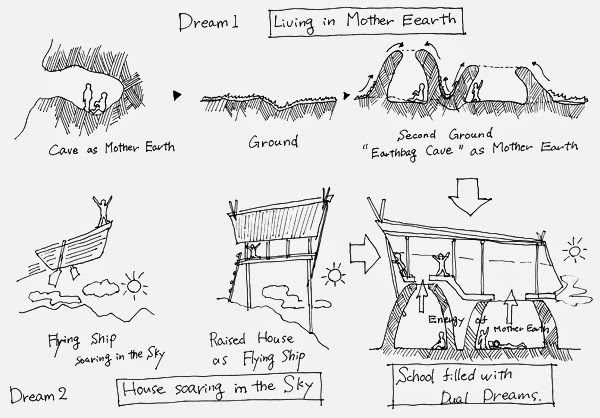 Dream 1 Living in Mother Eearth
Cave as Mother Earth
Ground
Second Ground
"Earthbag Cave" as Mother Earth
Flying Ship
soaring in the Sky
Raised House
as Flying Ship
Energy of Mother Earth
School filled with
Dual Dreams.
Dream 2 House soaring in the Sky